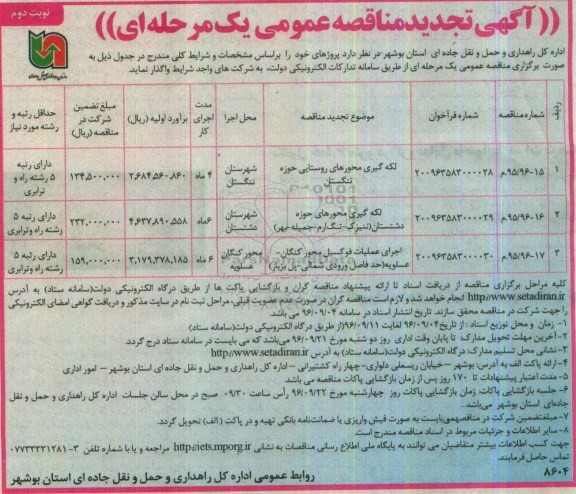 نوبت دوم
((آگهی تجدید مناقصه عمومی یک مرحله ای))
اداره کل راهداری و حمل و نقل جاده ای استان بوشهر در نظر دارد پروژهای خود را براساس مشخصات و شرایط کلی مندرج در جدول ذیل به
صورت برگزاری مناقصه عمومی یک مرحله ای از طریق سامانه تدارکات الکترونیکی دولت، به شرکت های واجد شرایط واگذار نماید.
ردیف شماره مناقصه شماره فرآخوان موضوع تجدید مناقصه محل اجرا مدت اجرای کار برآورد اولیه (ریال) مبلغ تضمین شرکت در مناقصه (ریال) حداقل رتبه و رشته مورد نیاز
۱ ۹۵/۹۶-۱۵.م ۲۰۰۹۶۳۵۸۳۰۰۰۰۲۸ لکه گیری محورهای روستایی حوزه تنگستان شهرستان تنگستان ۴ ماه ۳,۶۸۴,۵۶۰,۸۶۰ ۱۳۴,۵۰۰,۰۰۰ دارای رتبه ۵ رشته راه و ترابری
۲ ۹۵/۹۶-۱۶.م ۲۰۰۹۶۳۵۸۳۰۰۰۰۲۹ لکه گیری محورهای حوزه دشتستان(ننیزک-تنگ ارم-جمیله-نهر) شهرستان دشتستان ۶ماه ۴,۶۳۷,۸۹۰,۵۵۸ ۲۳۲,۰۰۰,۰۰۰ دارای رتبه ۵ رشته راه وترابری
۳ ۹۵/۹۶-۱۷.م ۲۰۰۹۶۳۵۸۳۰۰۰۰۳۰ اجرای عملیات فوگسیل محور کنگان- عسلویه(حد فاصل ورودی شمالی-پل بزباز) محور کنگان عسلویه ۶ ماه ۳,۱۷۹,۳۷۸,۱۸۵ ۱۵۹,۰۰۰,۰۰۰ دارای رتبه ۵ رشته راه وترابری
کلیه مراحل برگزاری مناقصه از دریافت اسناد تا ارائه پیشنهاد مناقصه گران و بازگشایی پاکت ها از طریق درگاه الکترونیکی دولت(سامانه ستاد) به آدرس
http://www.setadiran.ir انجام خواهد شد و لازم است مناقصه گران در صورت عدم عضویت قبلی، مراحل ثبت نام در سایت مذکور و دریافت گواهی امضای الکترونیکی
را جهت شرکت در مناقصه محقق سازند. تاریخ انتشار اسناد در سامانه ۹۶/۰۹/۰۴ می باشد.
۱- زمان و محل توزیع اسناد: از تاریخ ۹۶/۰۹/۰۴ لغایت ۹۶/۰۹/۱۱(از طریق درگاه الکترونیکی دولت(سامانه ستاد)
۲- آخرین مهلت تحویل مدارک: تا پایان وقت اداری روز دو شنبه مورخ ۹۶/۰۹/۲۱ می‌باشد که می بایست در سامانه ستاد درج گردد
۳-نشانی محل تسلیم مدارک: درگاه الکترونیکی دولت(سامانه ستاد) به آدرس http://www.setadiran.ir
۴-ارائه پاکت الف به آدرس: بوشهر – خیابان ریسعلی دلواری- چهار راه کشتیرانی – اداره کل راهداری و حمل و نقل جاده ای استان بوشهر – امور اداری
۵- مدت اعتبار پیشنهادات تا ۱۷۰ روز پس از زمان بازگشایی پاکات مناقصه می باشد.
۶- جلسه بازگشایی پاکات: زمان بازگشایی پاکات روز چهارشنبه مورخ ۹۶/۰۹/۲۲ رأس ساعت ۰۹/۳۰ صبح در محل سالن جلسات اداره کل راهداری و حمل و نقل
جاده‌ای استان بوشهر می‌باشد.
۷- مبلغ‌تضمین شرکت در مناقصه‌می‌بایست به صورت فیش واریزی یا ضمانت‌نامه بانکی تهیه و در پاکت (الف) تحویل گردد.
۸- سایر اطلاعات و جزئیات مربوط در اسناد مناقصه مندرج است.
جهت کسب اطلاعات بیشتر متقاضیان می توانند به پایگاه ملی اطلاع رسانی مناقصات به نشانی http://iets.mporg.ir مراجعه و یا با شماره تلفن ۳-۰۷۷۳۳۳۳۱۲۸۱
تماس حاصل فرمایند.
روابط عمومی اداره کل راهداری و حمل و نقل جاده ای استان بوشهر
۸۶۰۴